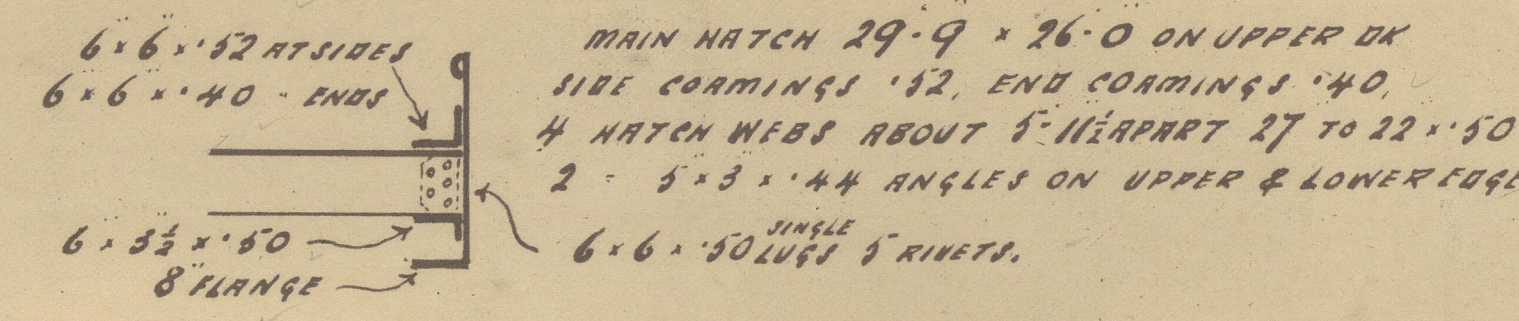 6" × 6" × ·52 AT SIDES
6" × 6" × ·40 " ENDS
6 × 3½ × ·50
8" FLANGE
MAIN HATCH 29·9 × 26·0 ON UPPER DK
SIDE COAMINGS ·52, END COAMINGS ·40,
4 HATCH WEBS ABOUT 5'·11½" APART 27 TO 22 × ·50
2 - 5 × 3 × ·44 ANGLES ON UPPER & LOWER EDGE
6 × 6 × ·50 SINGLE LUGS 5 RIVETS.